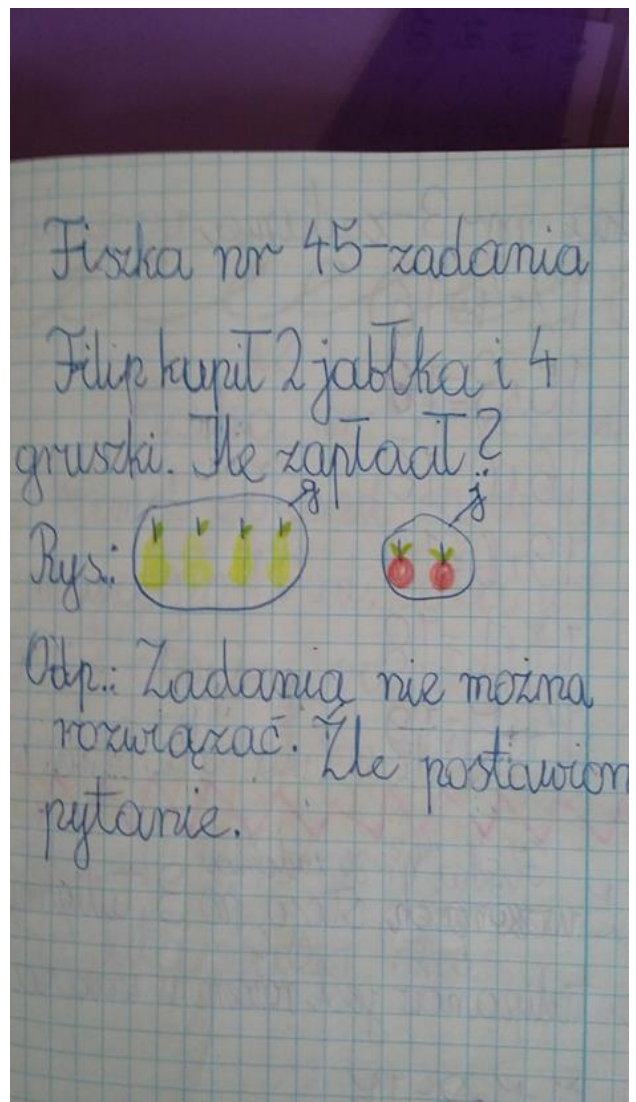 Fiszka nr 45-zadania
Filip kupił 2 jabłka i 4
gruszki. Ile zapłacił?
g j
Rys.:
Odp.: Zadania nie można
rozwiązać. Źle postawion
pytanie.